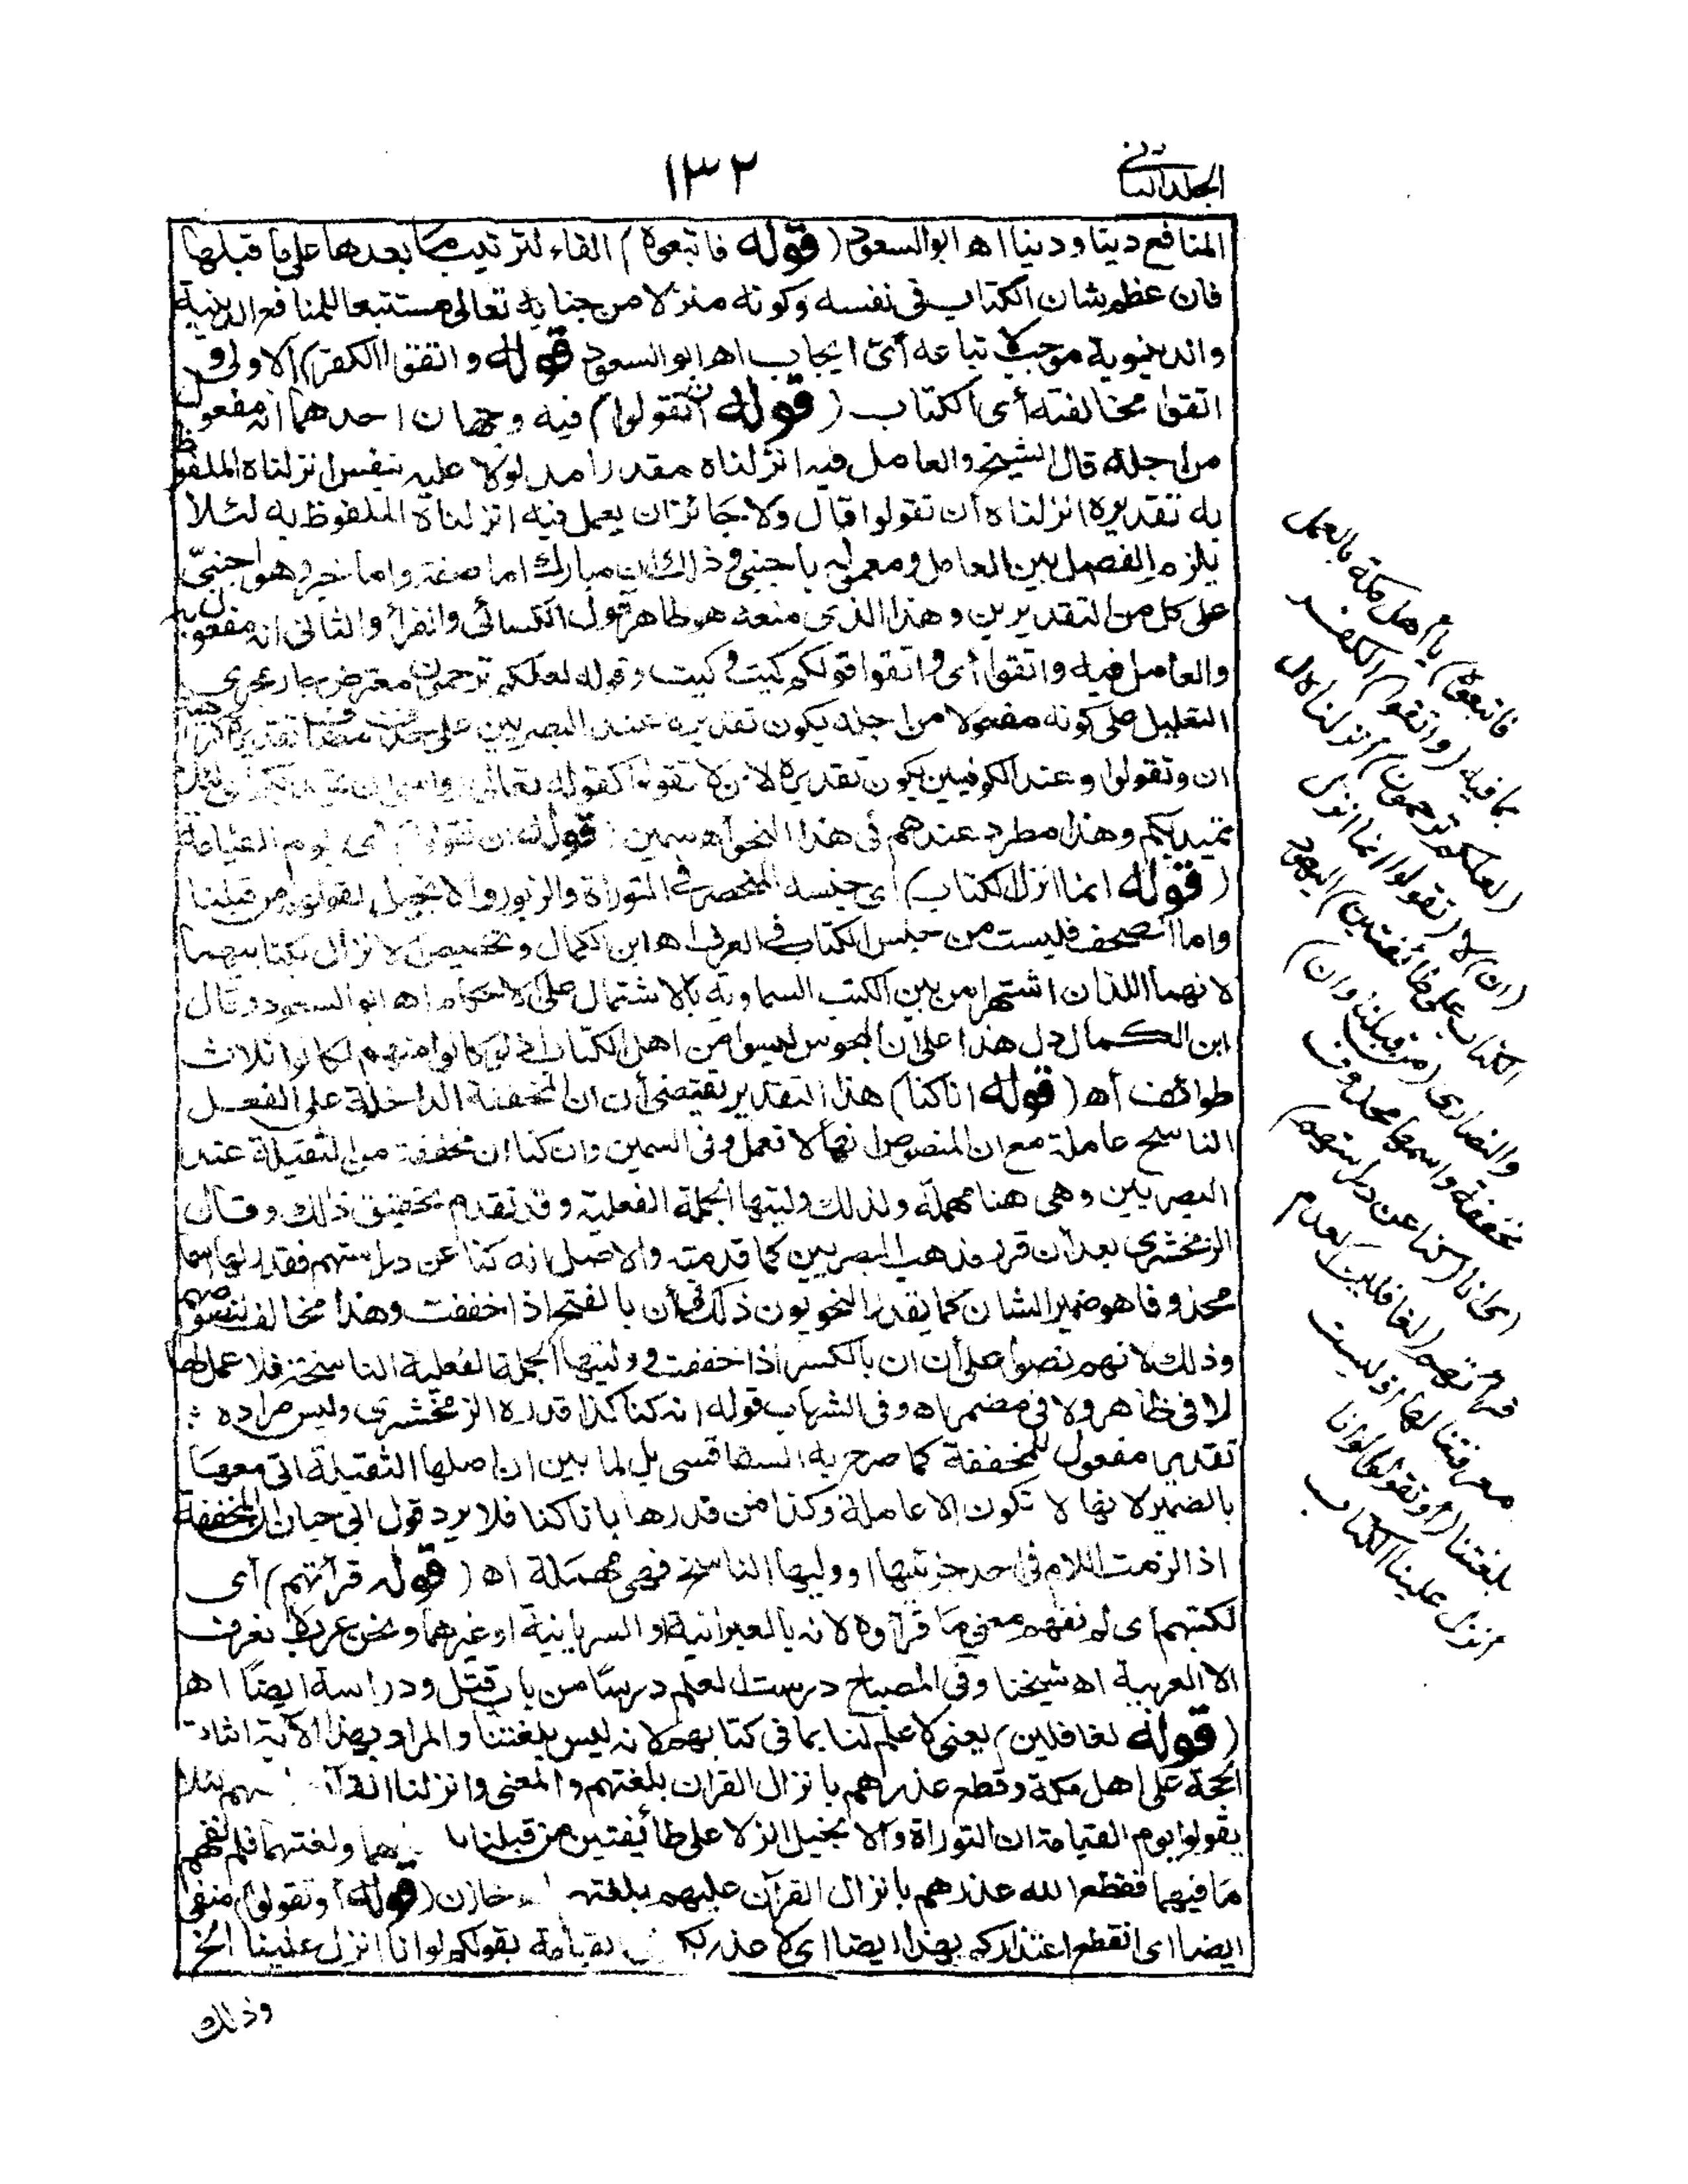 الجلد الثانى
١٣٢
المنافع دينا ودنيا اه ابو السعود (قوله فاتبعوه) الفاء لترتيب ما بعدها على ما قبلها
فان عظم شان الكتاب فى نفسه وكونه منزلا من جنابه تعالى مستتبعا للمنافع الدينية
والدنيوية موجب لاتباعه أىّ ايجاب اه ابو السعود قوله واتقوا الكفر) الاولى و
اتقوا مخالفته أى الكتاب (قوله ان تقولوا) فيه وجهان احدهما انه مفعول
من اجله قال الشيخ والعامل فيه انزلناه مقدرا مدلولا عليه بنفس انزلناه الملفوظ
به تقديره انزلناه أن تقولوا قال ولا جائز ان يعمل فيه انزلناه الملفوظ به لئلا
يلزم الفصل بين العامل ومعموله باجنبى وذلك ان مبارك اما صفة واما خبر وهو اجنبىّ
على كل من التقديرين وهذا الذى منعه هو ظاهر قول الكسائى والفراء والثانى انه مفعول به
والعامل فيه واتقوا أى واتقوا قولكم كيت وكيت وقوله لعلكم ترحمون معترض جار مجرى
التعليل على كونه مفعولا من اجله يكون تقديره عند البصريين على حذف مضاف تقديره كراهية
ان تقولوا وعند الكوفيين يكون تقديره لان لا تقولوا كقوله تعالى رواسى ان تميد بكم اى لئلا
تميد بكم وهذا مطرد عندهم فى هذا النحو اه سمين (قوله ان تقولوا) أى يوم القيامة
(قوله انما انزل الكتاب) اى جنسه المنحصر فى التوراة والزبور والانجيل لقوله من قبلنا
واما الصحف فليست من جنس الكتاب فى العرف اه ابن الكمال وتخصيص الانزال بكتابيهما
لانهما اللذان اشتهرا من بين الكتب السماوية بالاشتمال على الاحكام اه ابو السعود وقال
ابن الكمال دل هذا على ان المجوس ليسوا من اهل الكتاب اذ لو كانوا منهم لكانوا ثلاث
طوائف اه (قوله انا كنا) هذا التقدير يقتضى أن ان المخففة الداخلة على الفعل
الناسخ عاملة مع ان المنصوص انها لا تعمل وفى السمين وان كنا ان مخففة من الثقيلة عند
البصريين وهى هنا مهملة ولذلك وليتها الجملة الفعلية وقد تقدم تحقيق ذلك وقال
الزمخشرى بعد أن قرر مذهب البصريين كما قدمته والاصل انه كنا عن دراستهم فقدر لها اسما
محذوفا هو ضمير الشان كما يقدر النحويون ذلك فى أن بالفتح اذا خففت وهذا مخالف لنصوصهم
وذلك لانهم نصوا على أن ان بالكسر اذا خففت ووليتها الجملة الفعلية الناسخة فلا عمل لها
لا فى ظاهر ولا فى مضمر اه وفى الشهاب قوله انه كنا كذا قدره الزمخشرى وليس مراده
تقدير مفعول للمخففة كما صرح به السفاقسى بل لما بين ان اصلها الثقيلة اتى معها
بالضمير لانها لا تكون الا عاملة وكذا من قدرها بانا كنا فلا يرد قول ابى حيان ان المخففة
اذا لزمت اللام فى احد جزئيها ووليها الناسخ فهى مهملة اه (قوله قرأتهم) أى
لكتبهم اى لم نفهم معنى ما قرأوه لانه بالعبرانية او السريانية او غيرهما ونحن عرب لا نعرف
الا العربية اه شيخنا وفى المصباح درست العلم درسا من باب قتل ودراسة ايضا اه
(قوله لغافلين) يعنى لا علم لنا بما فى كتابهم لانه ليس بلغتنا والمراد بهذا الآية اثبات
الحجة على اهل مكة وقطع عذرهم بانزال القران بلغتهم والمعنى وانزلنا القرآن لئلا
يقولوا يوم القيامة ان التوراة والانجيل انزلا على طائفتين من قبلنا ولغتهما فلم نفهم
ما فيهما فقطع الله عذرهم بانزال القرآن عليهم بلغتهم خازن (قوله أو تقولوا) منفى
ايضا اى انقطع اعتذاركم بهذا ايضا اى لا عذر لكم القيامة بقولكم لو انا انزل علينا الخ
وذلك
فاتبعوه) يا أهل مكة بالعمل
بما فيه (واتقوا) الكفر
(لعلكم ترحمون) أنزلناه ل
(ان) لا (تقولوا انما انزل
الكتاب على طائفتين) اليهود
والنصارى (من قبلنا وان)
مخففة واسمها محذوف
اى انا (كنا عن دراستهم)
قرأتهم (لغافلين) لعدم
معرفتنا لها اذ ليست
بلغتنا (أو تقولوا لو انا
أنزل علينا الكتاب